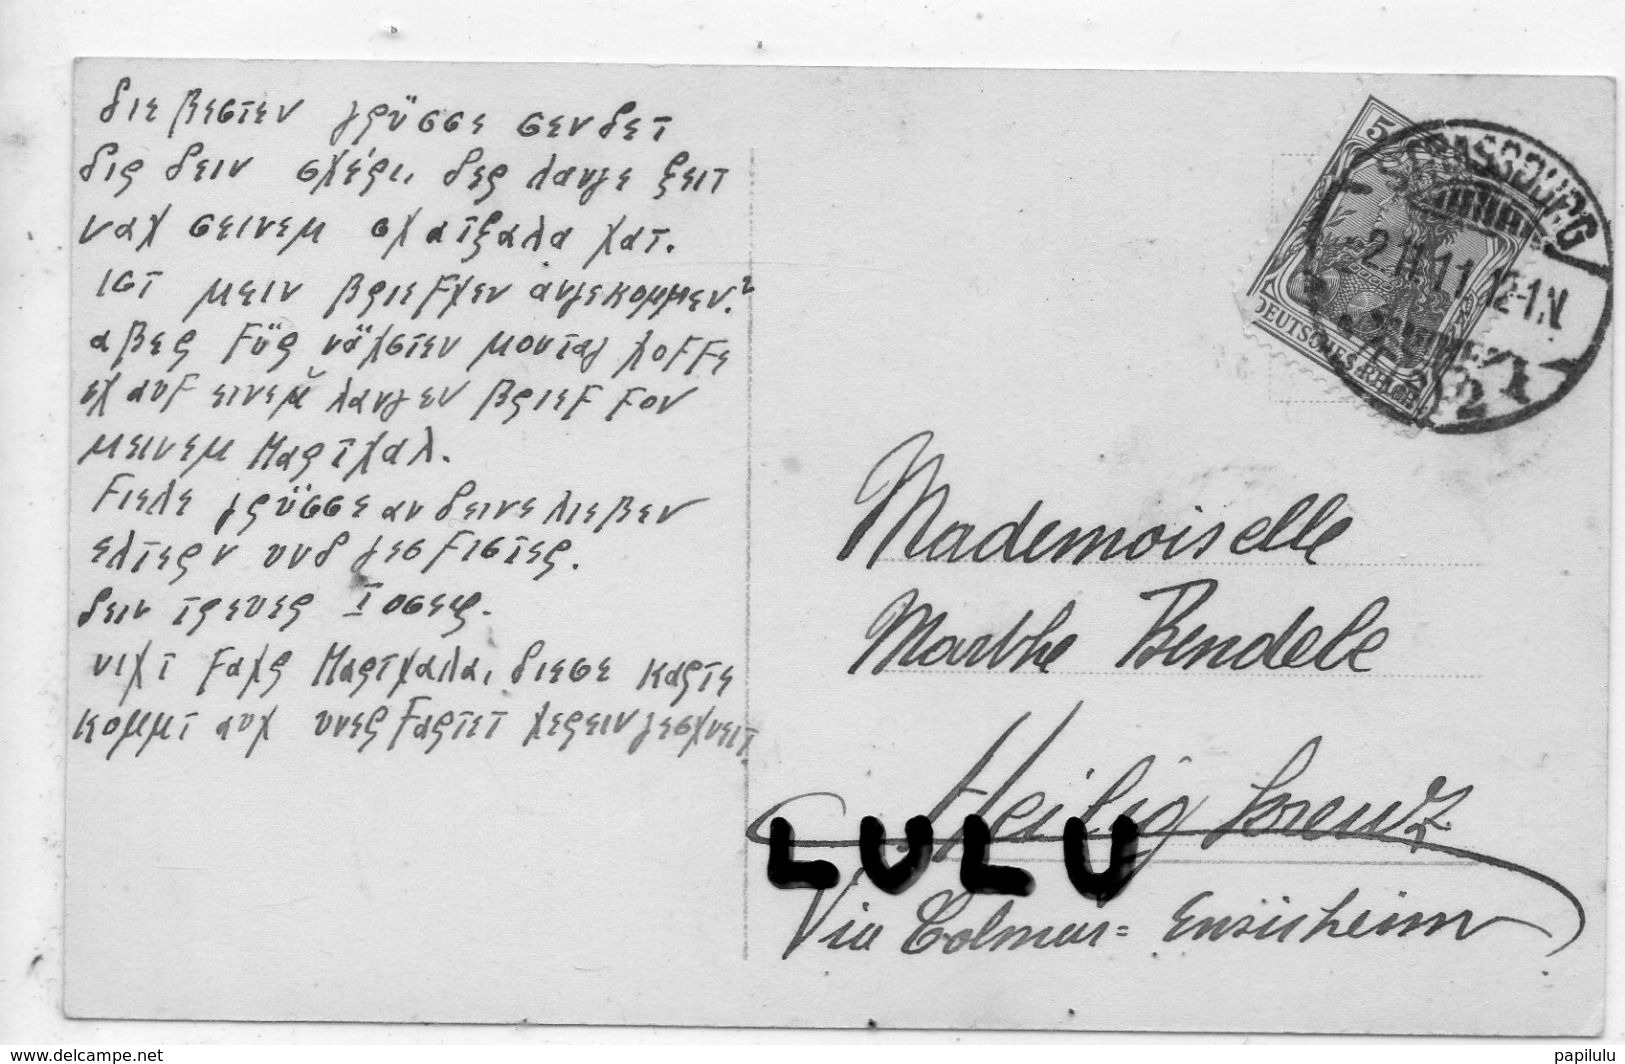 διε βεστεν γρüσσε σενδετ
διρ δειν σχέρι, δερ λανγε ξειτ
ναχ σεινεμ σχατξαλα χατ.
ιστ μειν βριεFχεν ανγεκομμεν?
αβερ Füρ νäχστεν μονταγ χοFFε
ιχ αυF εινεμ λανγεν βριεF Fον
μεινεμ Μαρτχαλ.
Fιελε γρüσσε αν δεινε λιεβεν
ελτερν υνδ γεσFιστερ.
δειν τρευερ Ιοσεφ.
νιχτ Fαχρ Μαρτχαλα, διεσε καρτε
κομμτ αυχ υνερFαρτετ χερεινγεσχνειτ.
STRASSBURG
2.11.11.12-1.N
DEUTSCHES REICH
5
Mademoiselle
Marthe Bendele
Heilig Kreuz
LULU
Via Colmar = Ensisheim
www.delcampe.net
papilulu